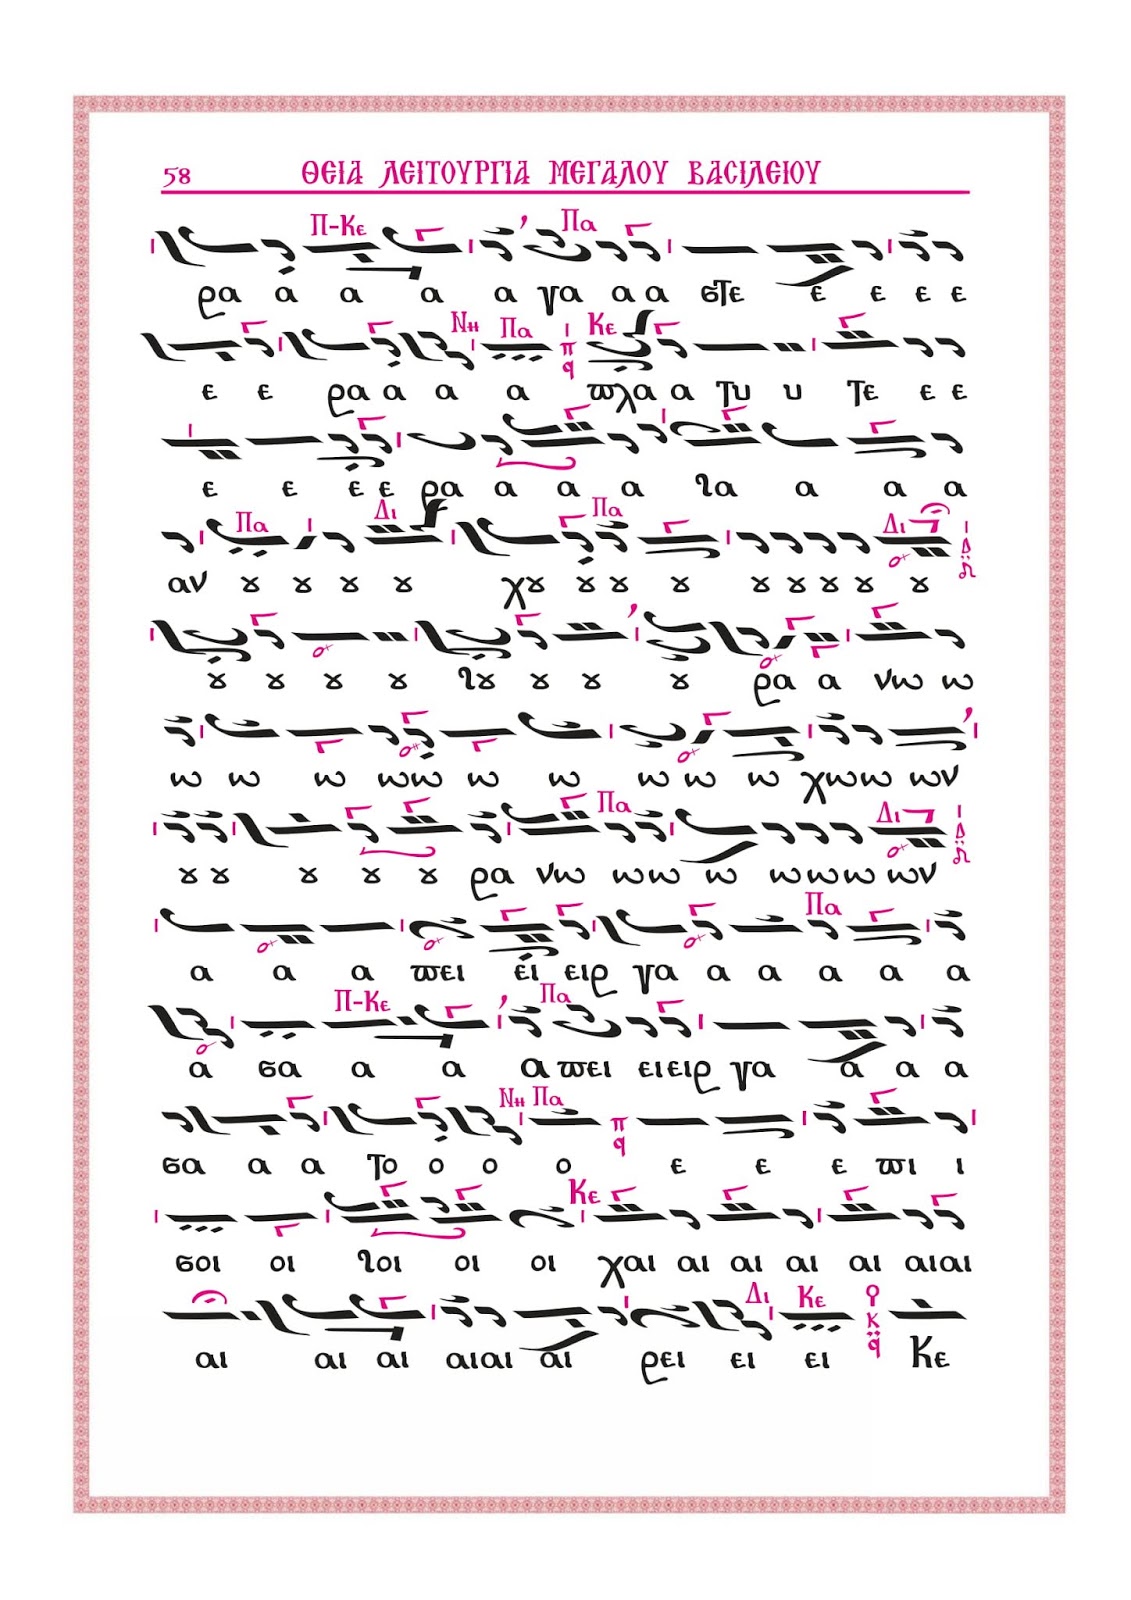 58 ΘΕΙΑ ΛΕΙΤΟΥΡΓΙΑ ΜΕΓΑΛΟΥ ΒΑCΙΛΕΙΟΥ
Π-Κε Πα
ρα α α α α γα α α στε ε ε ε ε
Νη Πα π q Κε
ε ε ρα α α α πλα α τυ υ τε ε ε
ε ε ε ε ρα α α α ια α α α
Πα Δι Πα Δι Δ
αν ȣ ȣ ȣ ȣ χȣ ȣ ȣ ȣ ȣ ȣ ȣ ȣ ȣ
ȣ ȣ ȣ ȣ ιȣ ȣ ȣ ȣ ρα α νω ω
ω ω ω ω ω ω ω ω ω ω χω ω ων
Πα Δι Δ
ȣ ȣ ȣ ȣ ȣ ρα νω ω ω ω ω ω ω ων
Πα
α α α πει ει ειρ γα α α α α α
Π-Κε Πα
α σα α α α πει ει ειρ γα α α α
Νη Πα π q
σα α α το ο ο ο ε ε ε πι ι
Κε
σοι οι ιοι οι οι χαι αι αι αι αι αι αι
Δι Κε κ q
αι αι αι αι αι αι ρει ει ει Κε